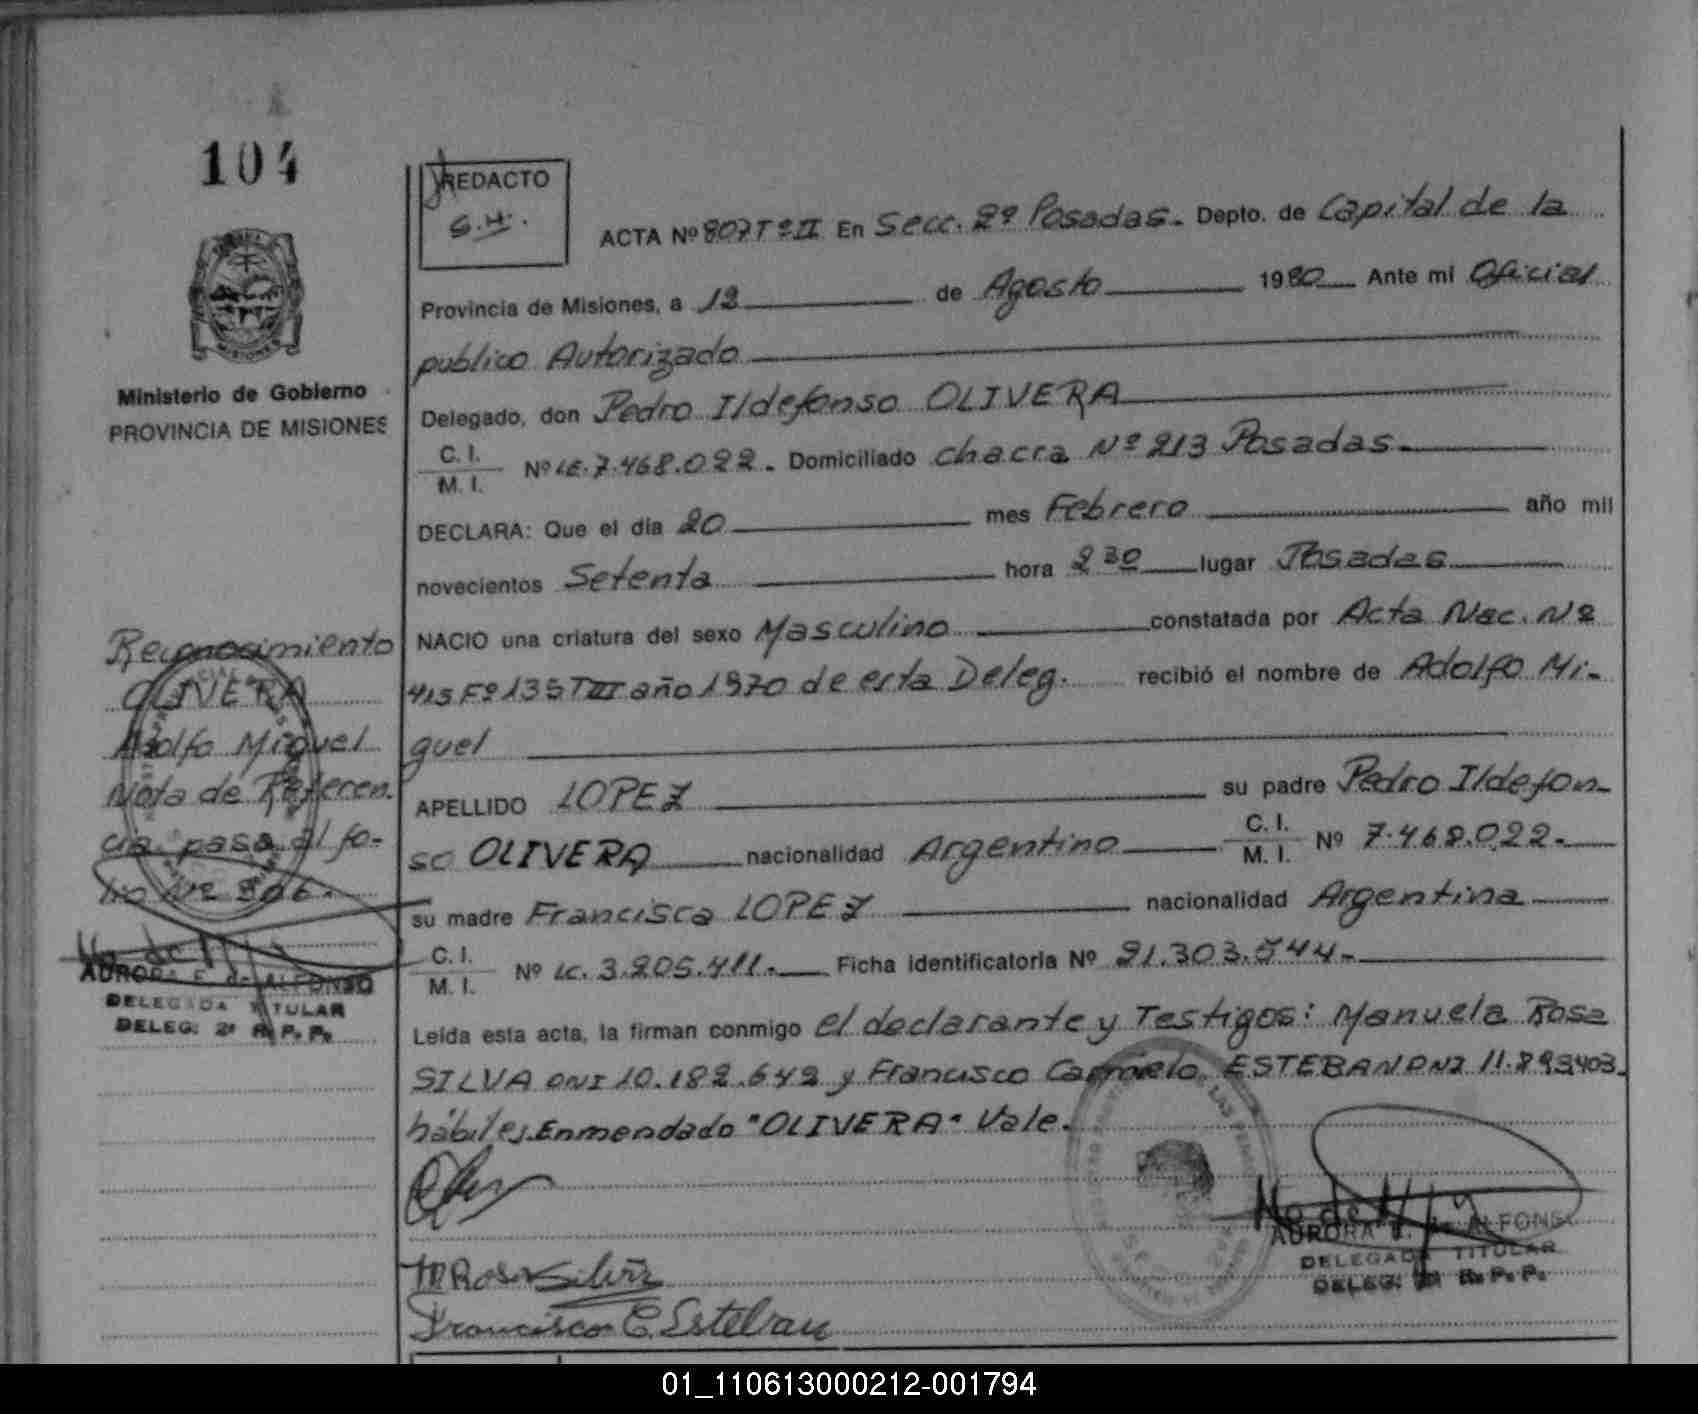 104
REDACTO
S.H.
ACTA Nº 807 Tº II En Secc. 2º Posadas. Depto. de Capital de la
Provincia de Misiones, a 12 de Agosto 1980 Ante mi Oficial
publico Autorizado
Delegado, don Pedro Ildefonso OLIVERA
C. I.
M. I. Nº LE. 7.468.022. Domiciliado chacra Nº 213 Posadas.
DECLARA: Que el día 20 mes Febrero año mil
novecientos Setenta hora 2 30 lugar Posadas
NACIO una criatura del sexo Masculino constatada por Acta Nac. Nº
413 Fº 135 T III año 1970 de esta Deleg. recibió el nombre de Adolfo Mi-
guel
APELLIDO LOPEZ su padre Pedro Ildefon-
so OLIVERA nacionalidad Argentino C. I.
M. I. Nº 7.468.022.
su madre Francisca LOPEZ nacionalidad Argentina
C. I.
M. I. Nº LC. 3.205.411. Ficha Identificatoria Nº 21.303.544.
Leída esta acta, la firman conmigo el declarante y Testigos: Manuela Rosa
SILVA DNI 10.182.642 y Francisco ESTEBAN DNI 11.893403.
hábiles. Enmendado "OLIVERA" Vale.
M Rosa Silva
Francisco C. Esteban
AURORA E. de ALFONSO
DELEGADA TITULAR
DELEG: 2ª R. P. P.
MISIONES
Ministerio de Gobierno
PROVINCIA DE MISIONES
Reconocimiento
OLIVERA
Adolfo Miguel
Nota de Referen-
cia pasa al fo-
lio Nº 306.
AURORA E. de ALFONSO
DELEGADA TITULAR
DELEG: 2ª R. P. P.
01_110613000212-001794